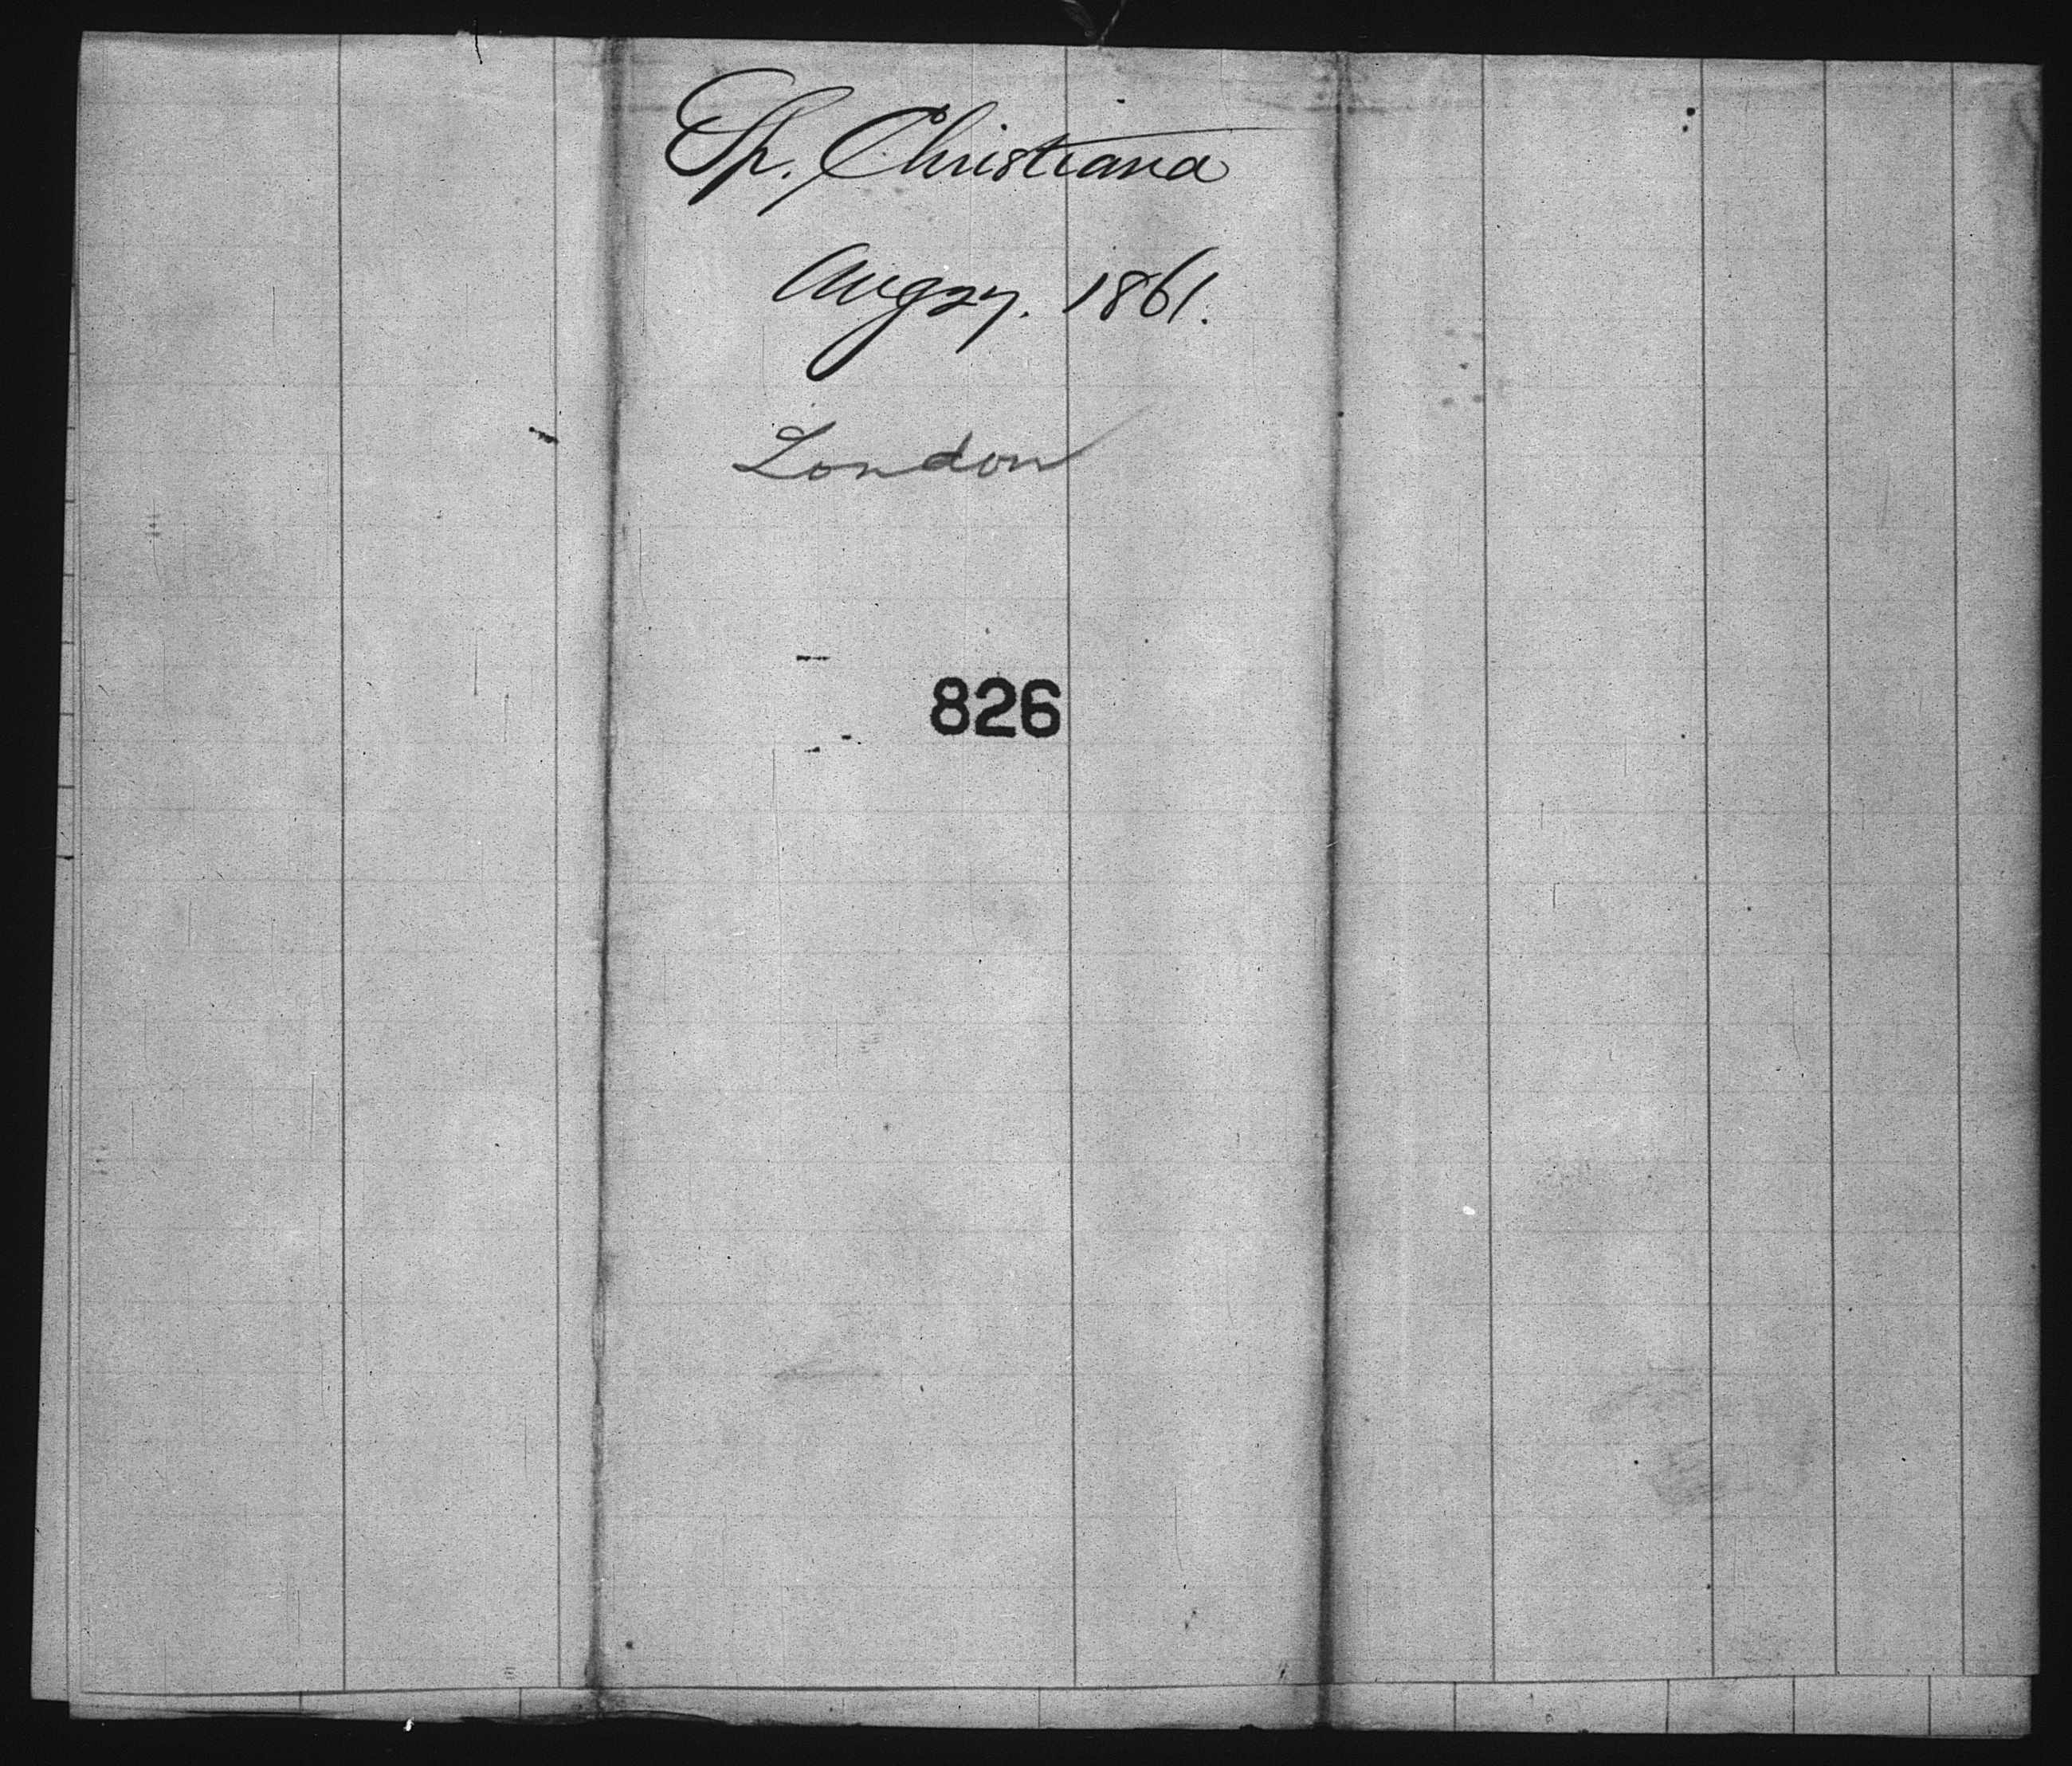 Sh. Christiana
Aug 27. 1861.
London
826